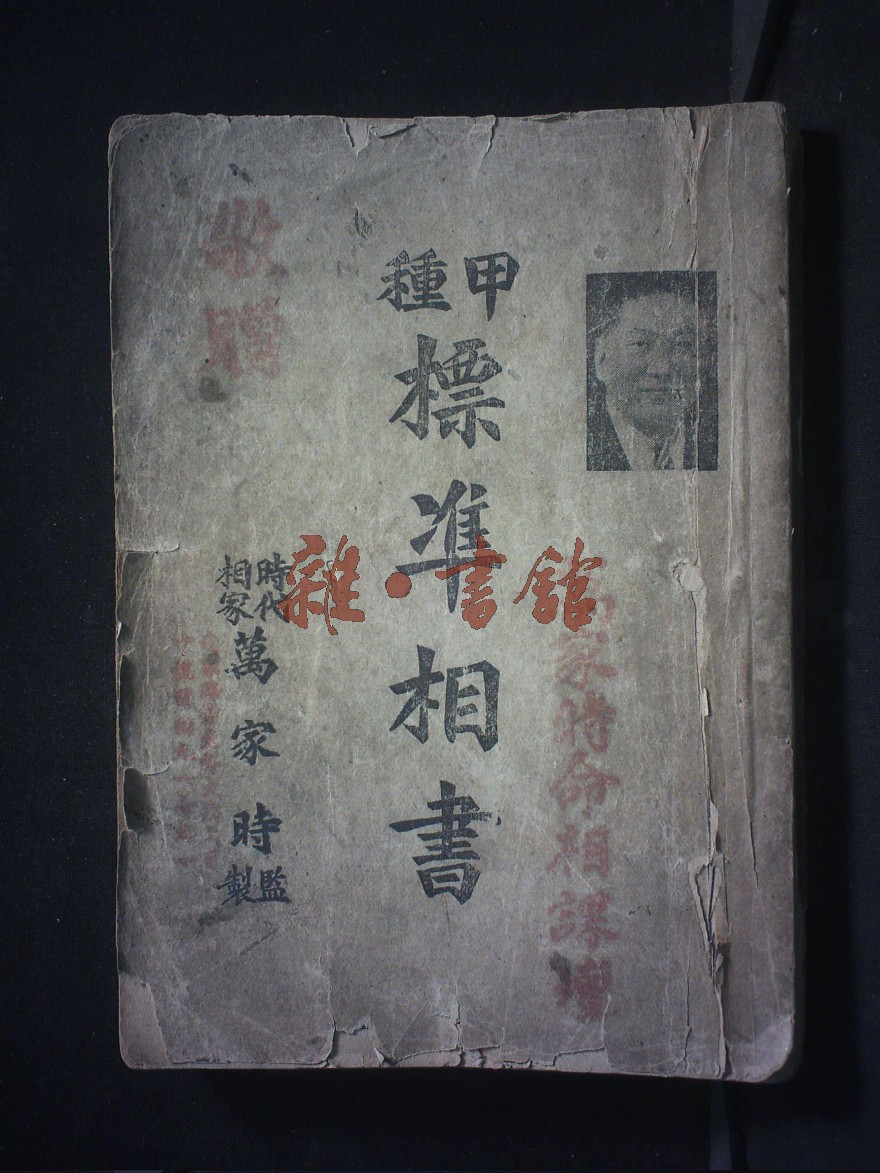 甲種
標準相書
時代相家
萬家時
監製
敬贈
萬家時命相課館
雜·書館